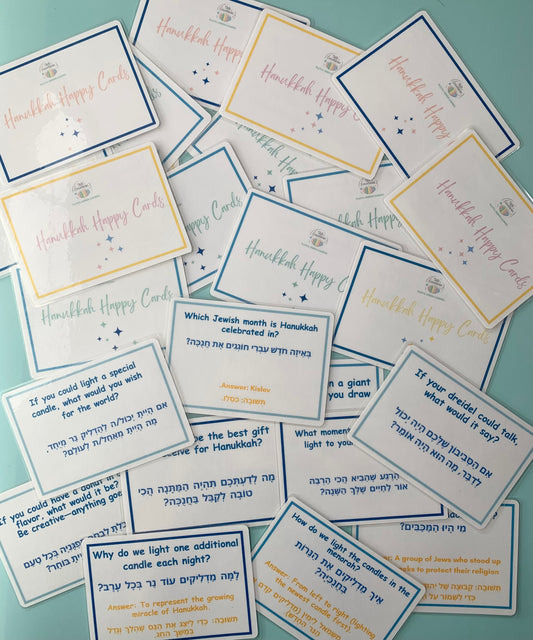 Hanukkah Happy Cards
Hanukkah Happy
Hanukkah Happy
Hanukkah Happy
Hanukkah Happy Cards
Happy Cards
Hanukkah Happy Cards
Hanukkah Happy C
Hanukkah Happy Cards
Hanukkah Happy
Which Jewish month is Hanukkah
celebrated in?
בְּאֵיזֶה חֹדֶשׁ עִבְרִי חוֹגְגִים אֶת חֲנֻכָּה?
Answer: Kislev.
תשובה: כסלו.
If you could light a special
candle, what would you wish
for the world?
אִם הָיִיתָ יכול/ה לְהַדְלִיק נֵר מְיֻחָד,
מָה הָיִיתָ מְאַחֵל/ת לָעוֹלָם?
n a giant
you draw
If your dreidel could talk,
what would it say?
אִם הַסְּבִיבוֹן שֶׁלָּכֶם הָיָה יָכוֹל
לְדַבֵּר, מָה הוּא הָיָה אוֹמֵר?
be the best gift
ceive for Hanukkah?
מָה לְדַעְתְּכֶם תִּהְיֶה הַמַּתָּנָה הֲכִי
טוֹבָה לְקַבֵּל בַּחֲנֻכָּה?
What momen
light to your
הָרֶגַע שֶׁהֵבִיא הֲכִי הַרְבֵּה
אוֹר לַחַיִּים שֶׁלָּךְ הַשָּׁנָה?
If you could have a donut in
flavor, what would it be?
Be creative—anything goe
Why do we light one additional
candle each night?
לָמָּה מַדְלִיקִים עוֹד נֵר בְּכָל עֶרֶב?
Answer: To represent the growing
miracle of Hanukkah.
תשובה: כדי לייצג את הנס שהולך וגדל
במשך החג.
How do we light the candles in the
menorah?
אֵיךְ מַדְלִיקִים אֶת הַנֵּרוֹת
בַּחֲנֻכִּיָּה?
Answer: From left to right (lighting
the newest candle first).
מִי הָיוּ הַמַּכַּבִּים?
: A group of Jews who stood up
eeks to protect their religion